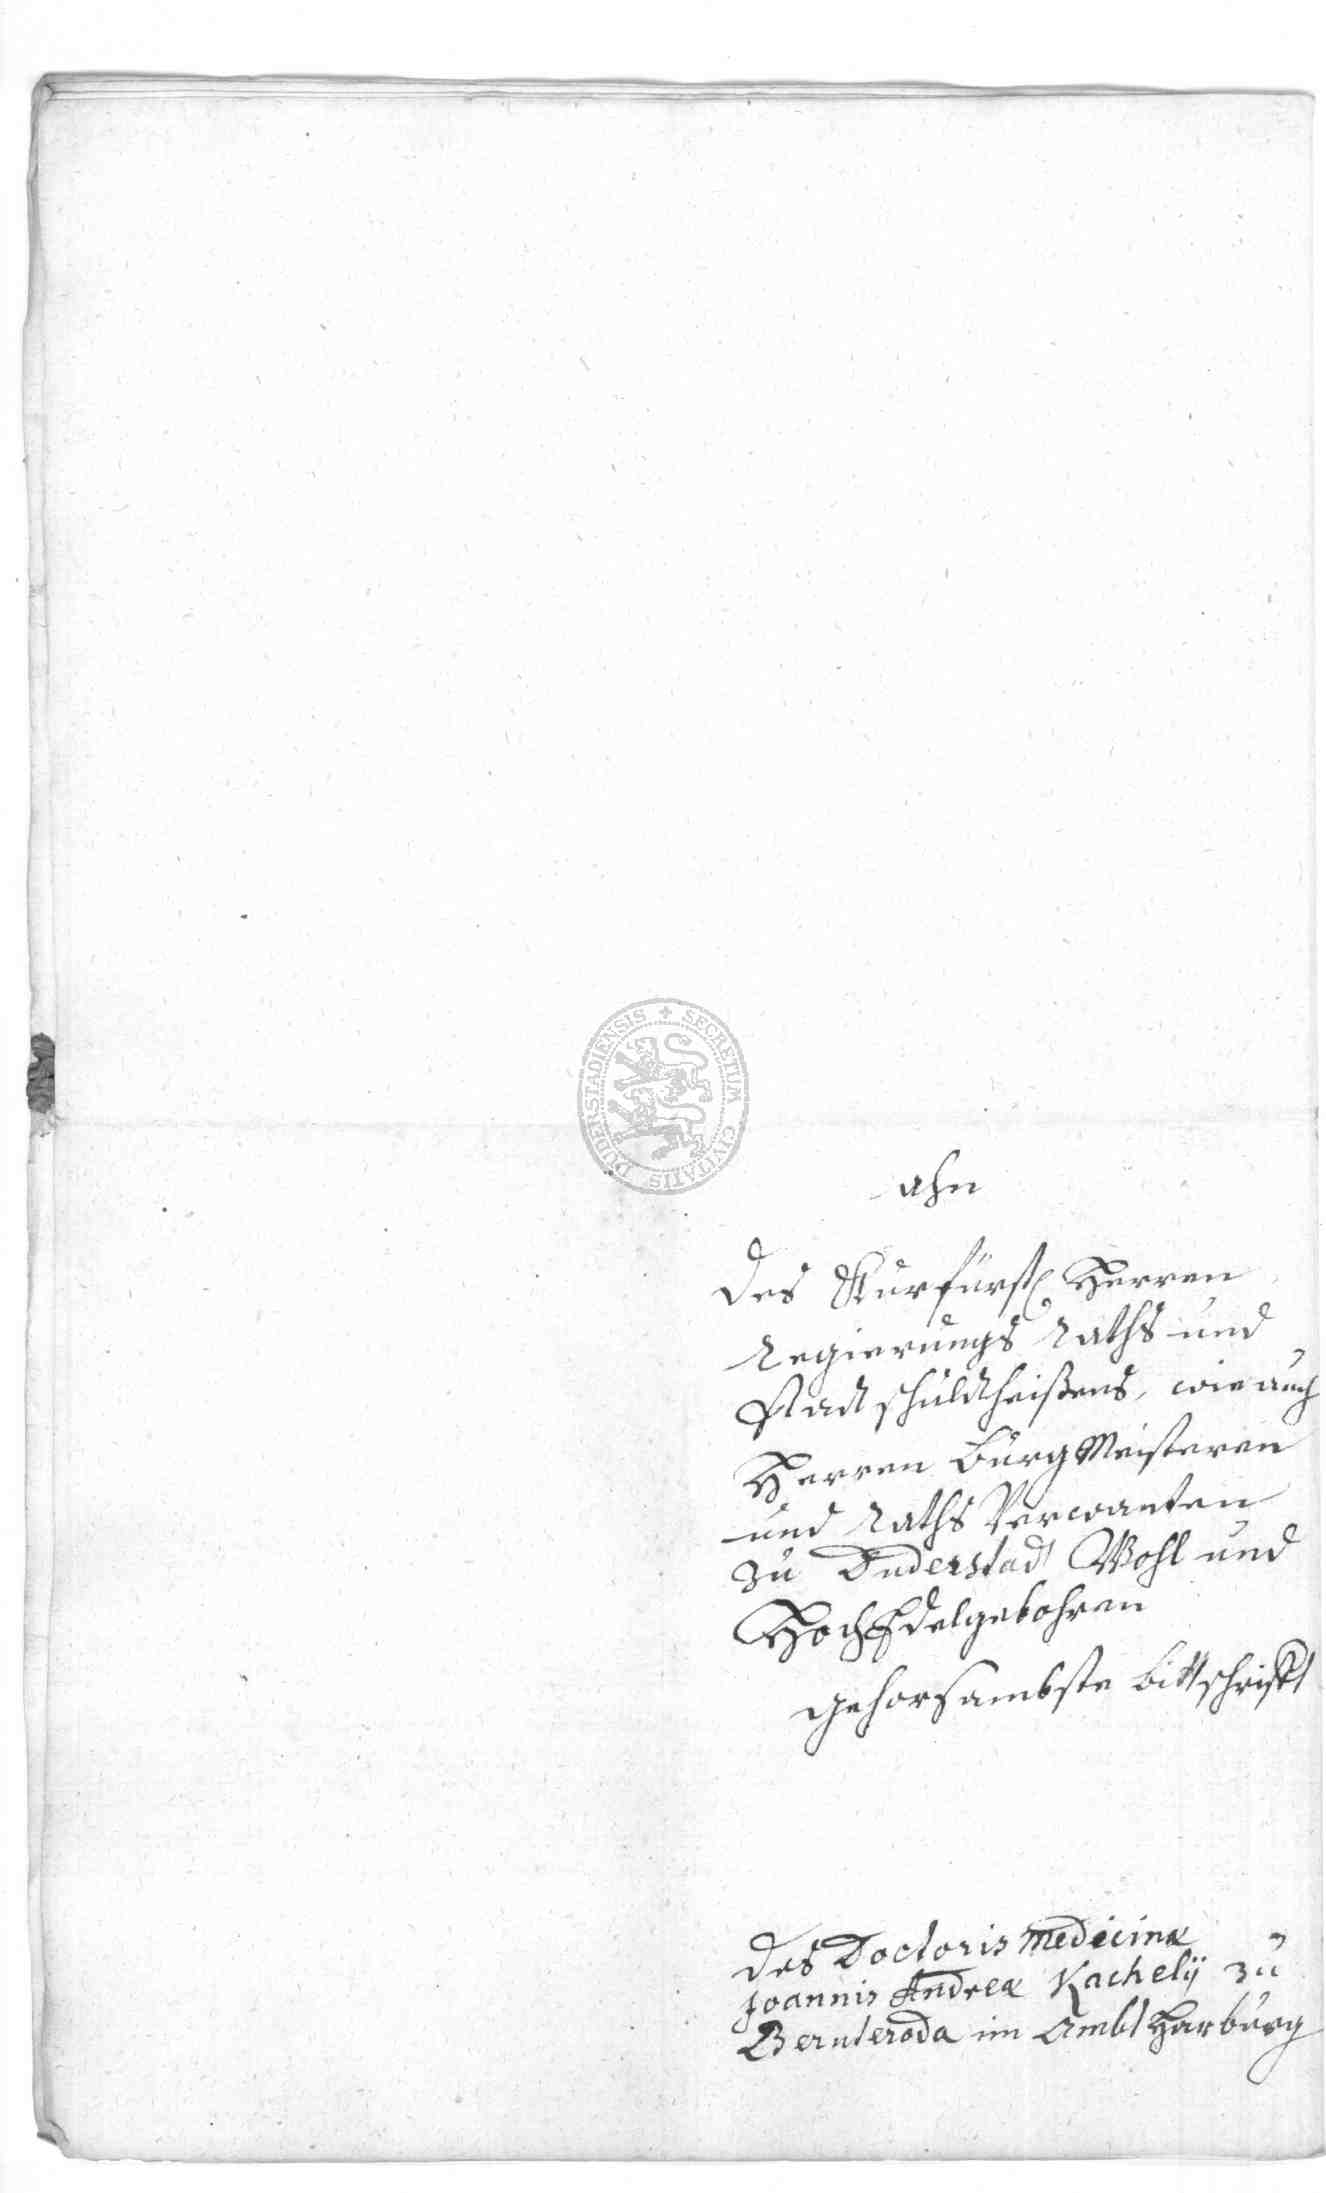 SECRETUM CIVITATIS DUDERSTADIENSIS
ahn
des Kurfürstl Herren
Regierungs Raths und
Stadt schuldtheißens, wie auch
Herren BurgMeisteren
und Raths Verwanten
zu Duderstadt Wohl und
HochEdelgebohren
gehorsambste bittschrifft
des Doctoris medicinæ
Joannis Andreæ Kachelij zu
Bernteroda im Ambt Harburg